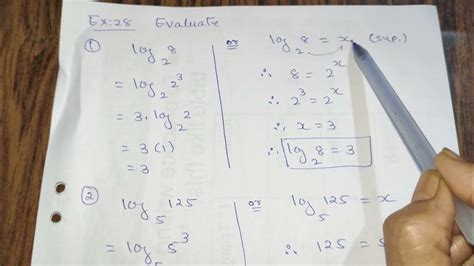 Ex:28 Evaluate
① log₂8
= log₂2³
= 3·log₂2
= 3(1)
= 3
or
log₂8 = x (sup.)
∴ 8 = 2ˣ
∴ 2³ = 2ˣ
∴ x = 3
∴ log₂8 = 3
② log₅125
= log₅5³
or
log₅125 = x
∴ 125 = 5